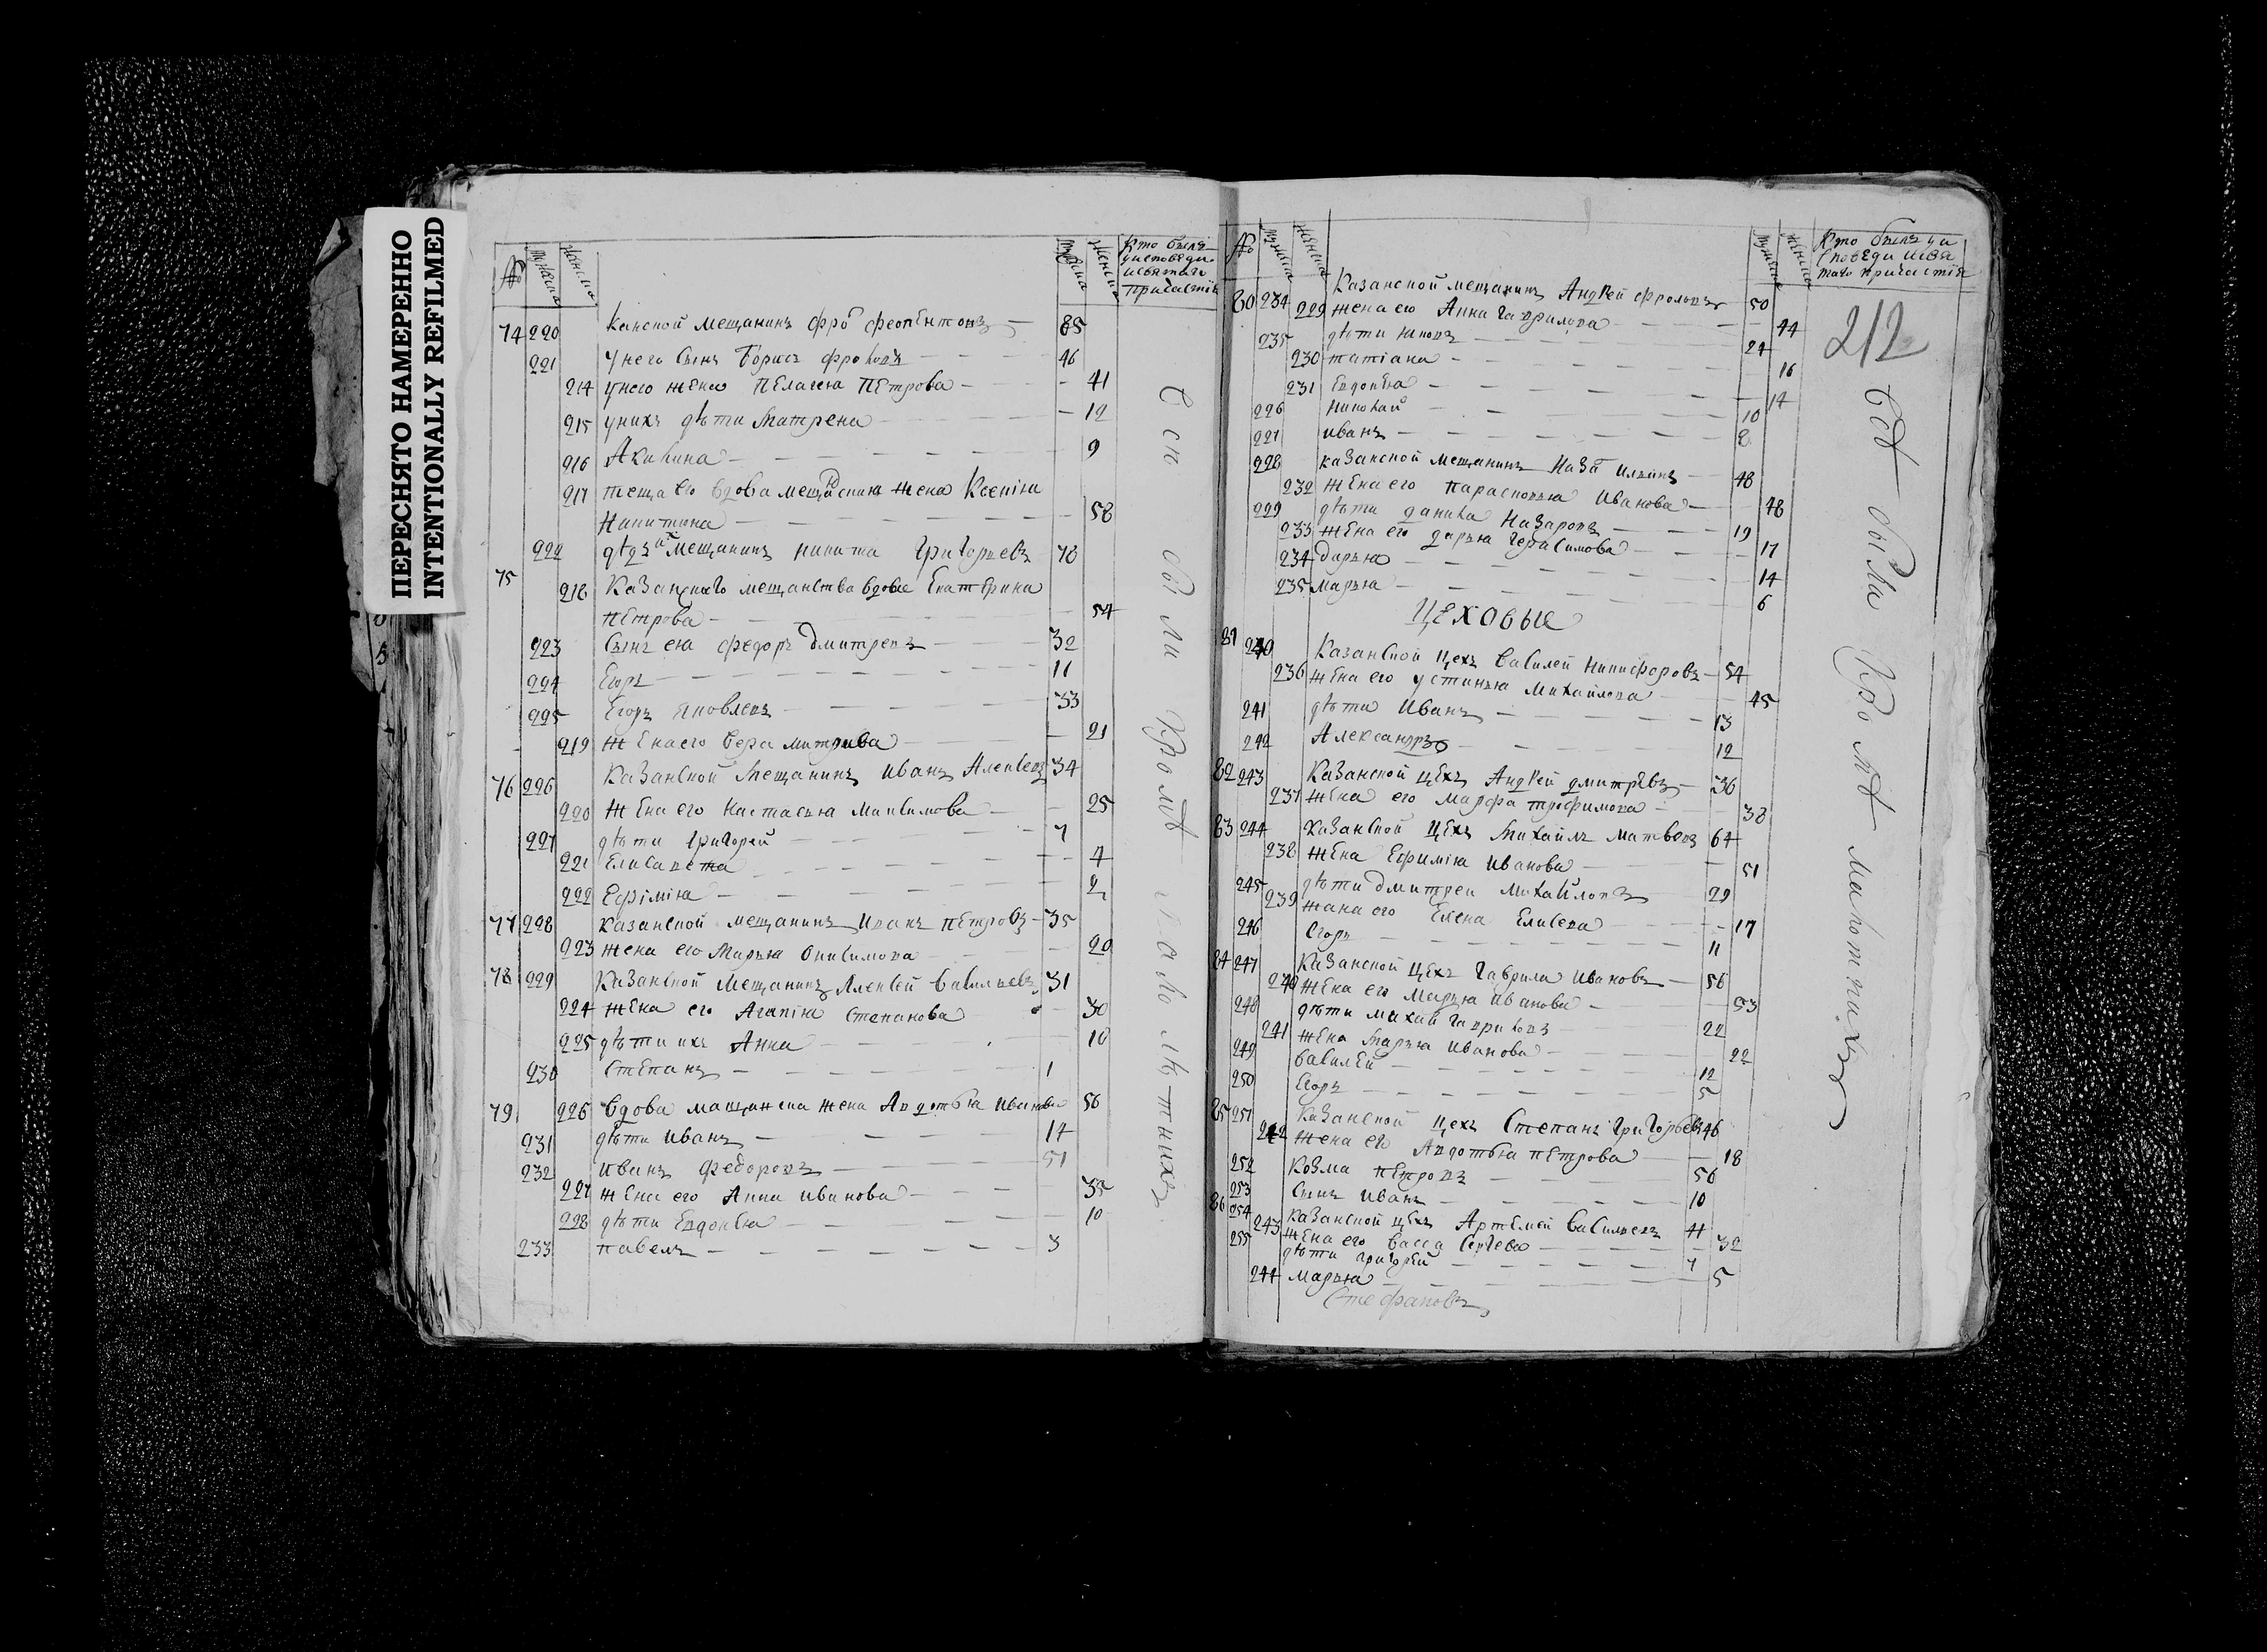 ПЕРЕСНЯТО НАМЕРЕННО
INTENTIONALLY REFILMED
№ мужеска женска мужеска женска Кто былъ
у исповеди
и святаго
причастія
74 220 Канской мещанинъ Фро Феопентонъ 85
221 у него сынъ Борисъ Фроловъ 46
214 у него жена Пелагея Петрова 41
215 у нихъ дѣти Матрена 12
216 Акилина 9
217 теща его вдова мещанская жена Ксенія
Никитина 58
222 дядя мещанинъ Никита Григорьевъ 78
75 218 Казанскаго мещанства вдова Екатерина
Петрова 54
223 Сынъ ея Федоръ Дмитревъ 32
224 Егоръ 11
225 Егоръ Яковлевъ 33
219 жена его Вера Митрива 21
76 226 Казанской Мещанинъ Иванъ Алексевъ 34
220 жена его Настасья Максимова 25
227 дѣти Григорей 7
221 Елисавета 4
222 Ефімія 2
77 228 Казанской мещанинъ Иванъ Петровъ 35
223 жена его Марья Онисимова 20
78 229 Казанской Мещанинъ Алексей Васильевъ 31
224 жена его Агапія Степанова 30
225 дѣти ихъ Анна 10
230 Степанъ 1
79 226 Вдова мащанска жена Авдотья Иванова 56
231 дѣти Иванъ 14
232 Иванъ Федоровъ 51
227 жена его Анна Иванова 35
228 дѣти Евдокея 10
233 Павелъ 3
Всѣ были кромѣ малолѣтнихъ
№ мужеска женска мужеска женска Кто былъ у и
споведи и свя
таго причастія
212
80 234 Казанской мещанинъ Андрей Фроловъ 50
229 жена его Анна Гаврилова 44
235 дѣти Яковъ 24
230 Татіана 16
231 Евдокея 14
226 Николай 10
227 Иванъ 8
228 Казанской мещанинъ Наза Ильинъ 48
232 жена его Парасковья Иванова 48
229 дѣти Данила Назаровъ 19
233 жена его Дарья Герасимова 17
234 Дарья 14
235 Марья 6
Цеховые
81 240 Казанской цехъ Василей Никифоровъ 54
236 жена его Устинья Михайлова 45
241 дѣти Иванъ 13
242 Александръ 12
82 243 Казанской цехъ Андрей Дмитревъ 36
237 жена его Марфа Трофимова 38
83 244 Казанской цехъ Михайлъ Матвевъ 64
238 жена Ефимія Иванова 51
245 дѣти Дмитреи Михайловъ 29
239 жана его Елена Елисева 17
246 Егоръ 11
84 247 Казанской цехъ Гаврила Ивановъ 56
240 жена его Марья Иванова 53
248 дѣти Михай Гавриловъ 22
241 жена Марья Иванова 22
249 Василей 12
250 Егоръ 5
85 251 Казанской цехъ Степанъ Григорьевъ 46
242 жена его Авдотья Петрова 18
252 Козма Петровъ 56
253 Сынъ Иванъ 10
86 254 Казанской цехъ Артемей Васильевъ 41
243 жена его Васса Сергева 32
255 дѣти Григорей 7
244 Марья 5
Стефановъ
Всѣ были кромѣ малолѣтнихъ